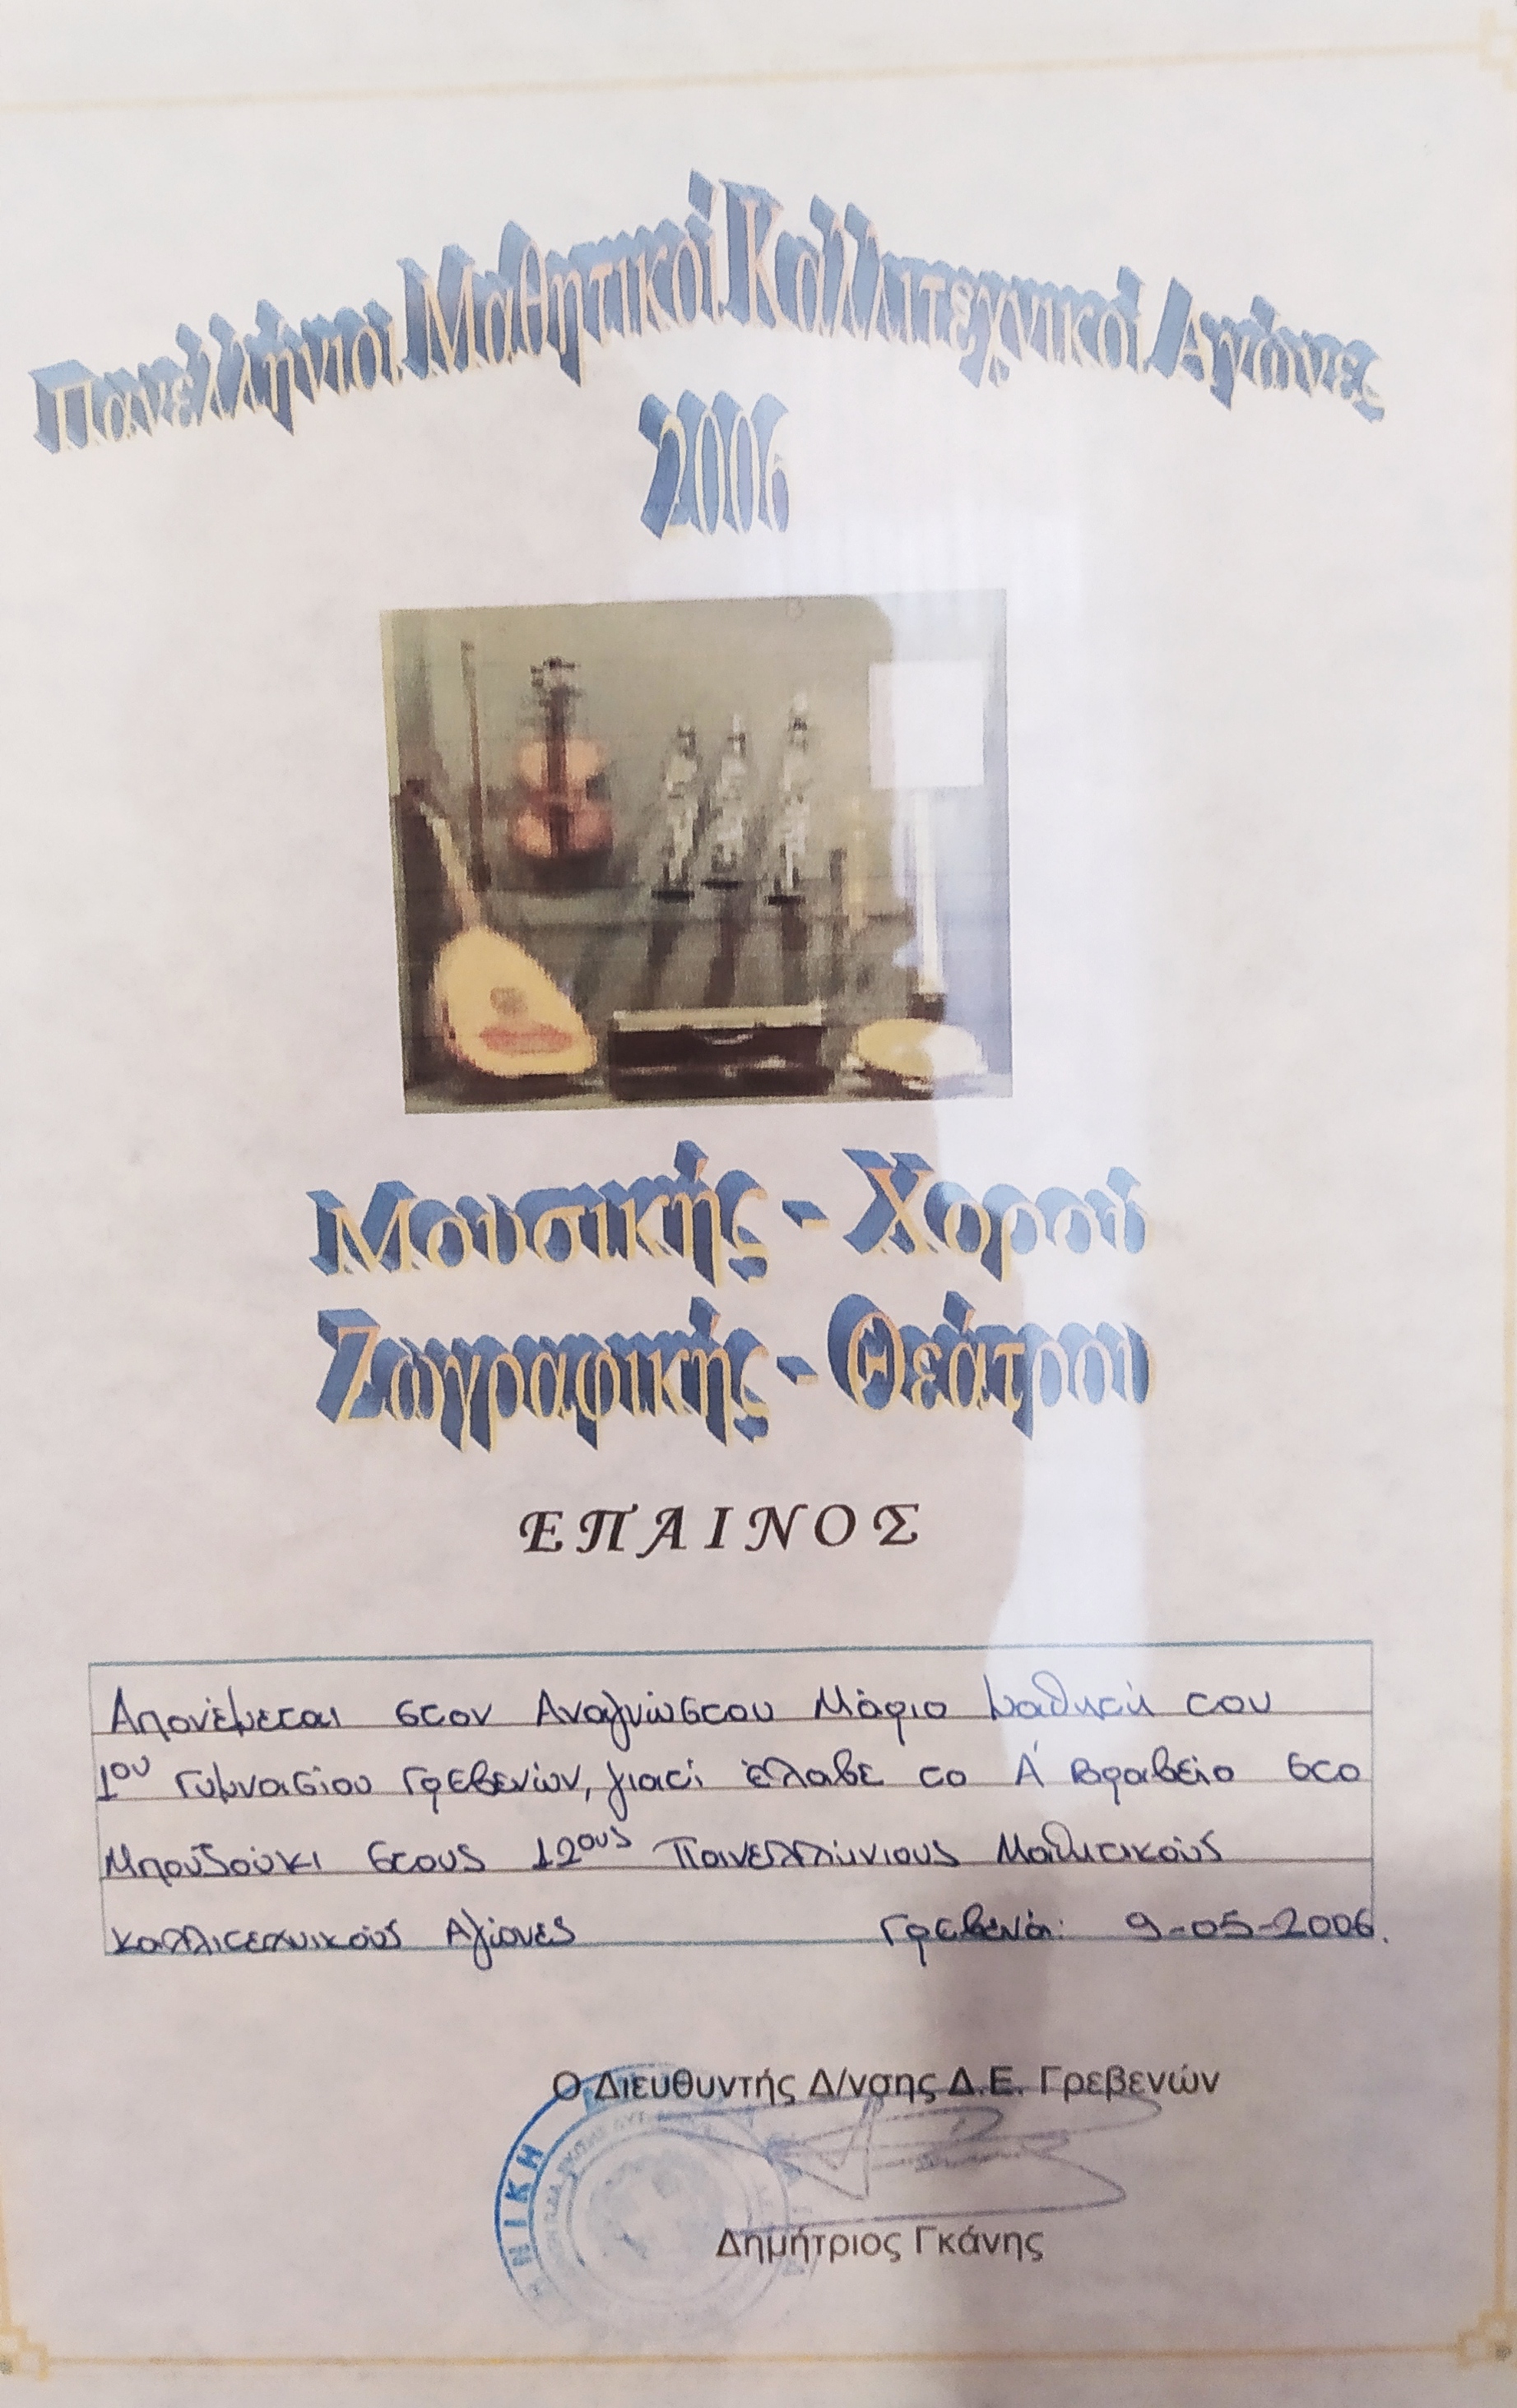 Πανελλήνιοι Μαθητικοί Καλλιτεχνικοί Αγώνες
2006
Μουσικής - Χορού
Ζωγραφικής - Θεάτρου
ΕΠΑΙΝΟΣ
Απονέμεται στον Αναγνώστου Μάριο μαθητή του
1ου Γυμνασίου Γρεβενών, γιατί έλαβε το Α' Βραβείο στο
Μπουζούκι στους 12ους Πανελλήνιους Μαθητικούς
Καλλιτεχνικούς Αγώνες Γρεβενά: 9-05-2006.
Ο Διευθυντής Δ/νσης Δ.Ε. Γρεβενών
Δημήτριος Γκάνης